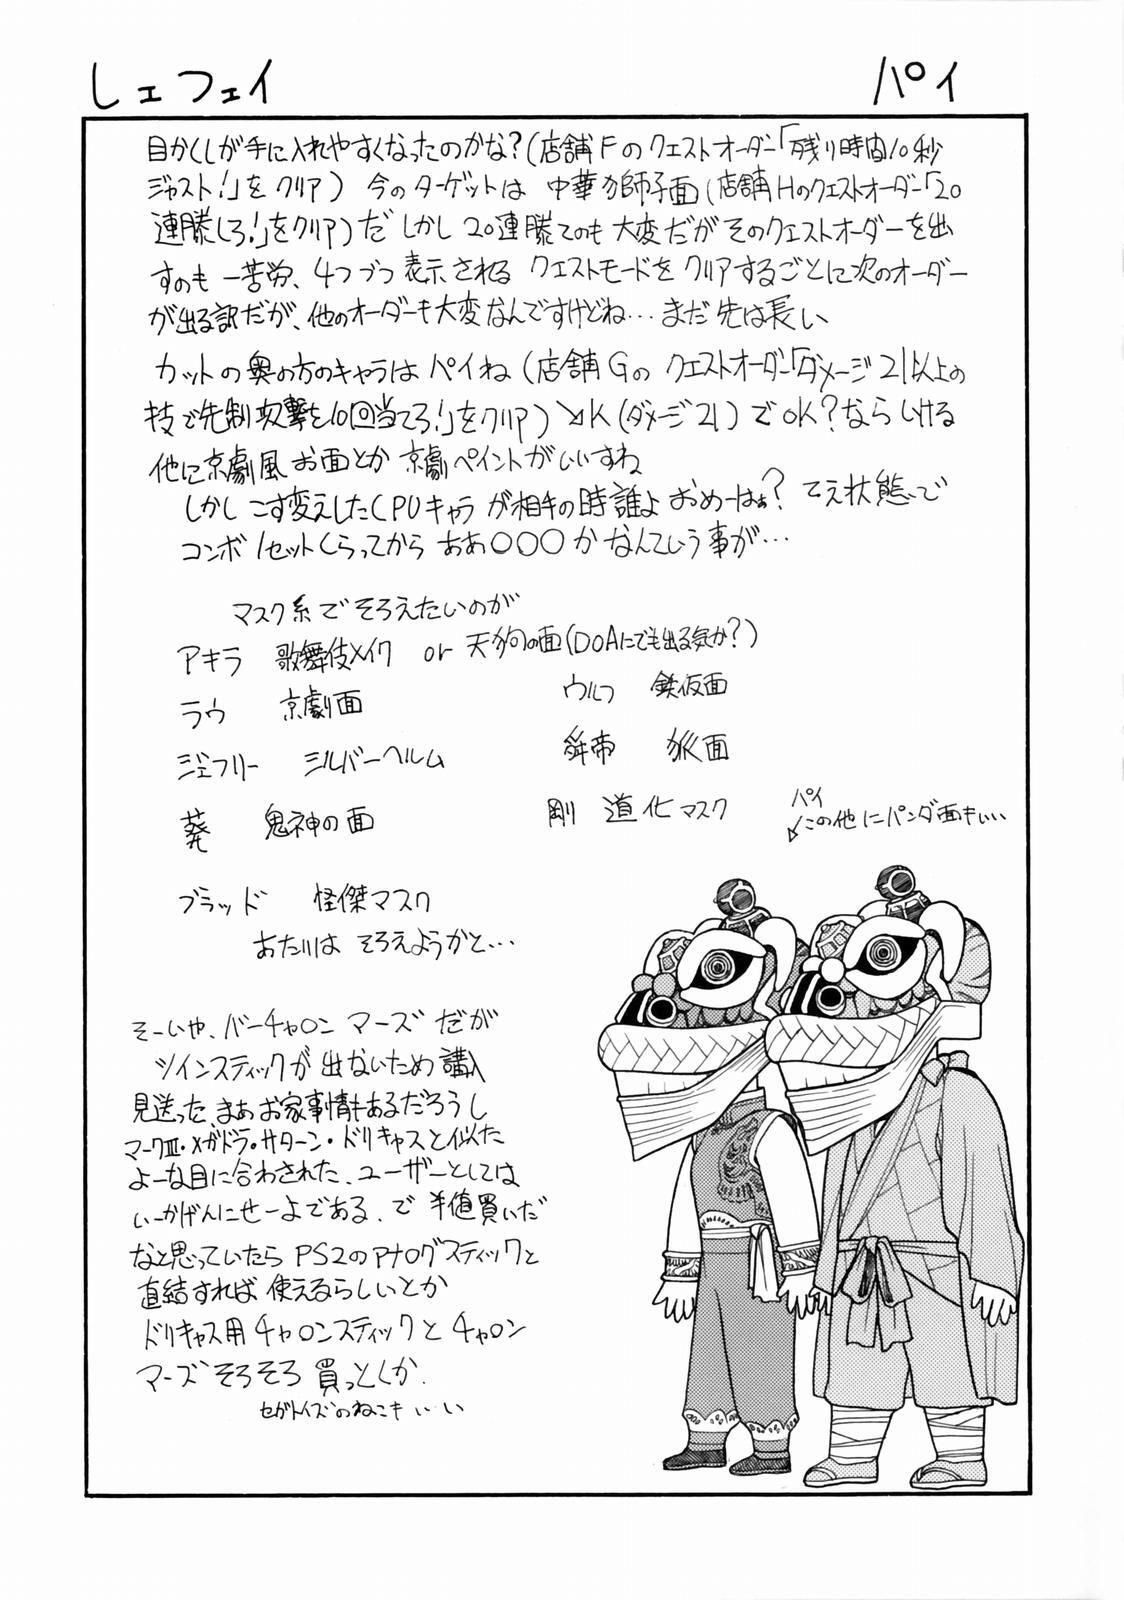 しェフェイ
パイ
目かくしが手に入れやすくなったのかな?(店舗Fのクエストオーダー「残り時間10秒
ジャスト!」をクリア) 今のターゲットは 中華獅子面(店舗Hのクエストオーダー「20
連勝しろ!」をクリア)だ しかし 20連勝てのも 大変だが そのクエストオーダーを出
すのも 一苦労、4つづつ 表示される クエストモードを クリアするごとに次のオーダー
が出る訳だが、他のオーダーも大変なんですけどね… まだ 先は長い
カットの奥の方のキャラは パイね(店舗Gの クエストオーダー「ダメージ21以上の
技で先制攻撃を10回当てろ!」をクリア) ↘K(ダメージ21)でOK?なら いける
他に京劇風 お面とか 京劇ペイントがいいすね
しかし こす変えしたCPUキャラ が相手の時 誰よ おめーはぁ? てえ状態で
コンボ1セットくらってから ああ○○○か なんていう事が…
マスク系でそろえたいのが
アキラ 歌舞伎メイク or 天狗の面(DOAにでも出る気か?)
ラウ 京劇面
ウルフ 鉄仮面
ジェフリー シルバーヘルム
舜帝 狐面
葵 鬼神の面
剛 道化マスク
パイ
この他にパンダ面もいい
ブラッド 怪傑マスク
あたりは そろえようかと…
そーいや、バーチャロン マーズ だが
ツインスティックが 出ないため 購入
見送った、まあ お家事情もあるだろうし
マークⅢ・メガドラ・サターン・ドリキャスと似た
よーな目に合わされた、ユーザーとしては
いーかげんにせーよである、で 半値買いだ
なと思っていたら PS2のアナログスティックと
直結すれば 使えるらしいとか
ドリキャス用 チャロンスティックと チャロン
マーズ そろそろ 買っとくか.
セガトイズのねこもいい